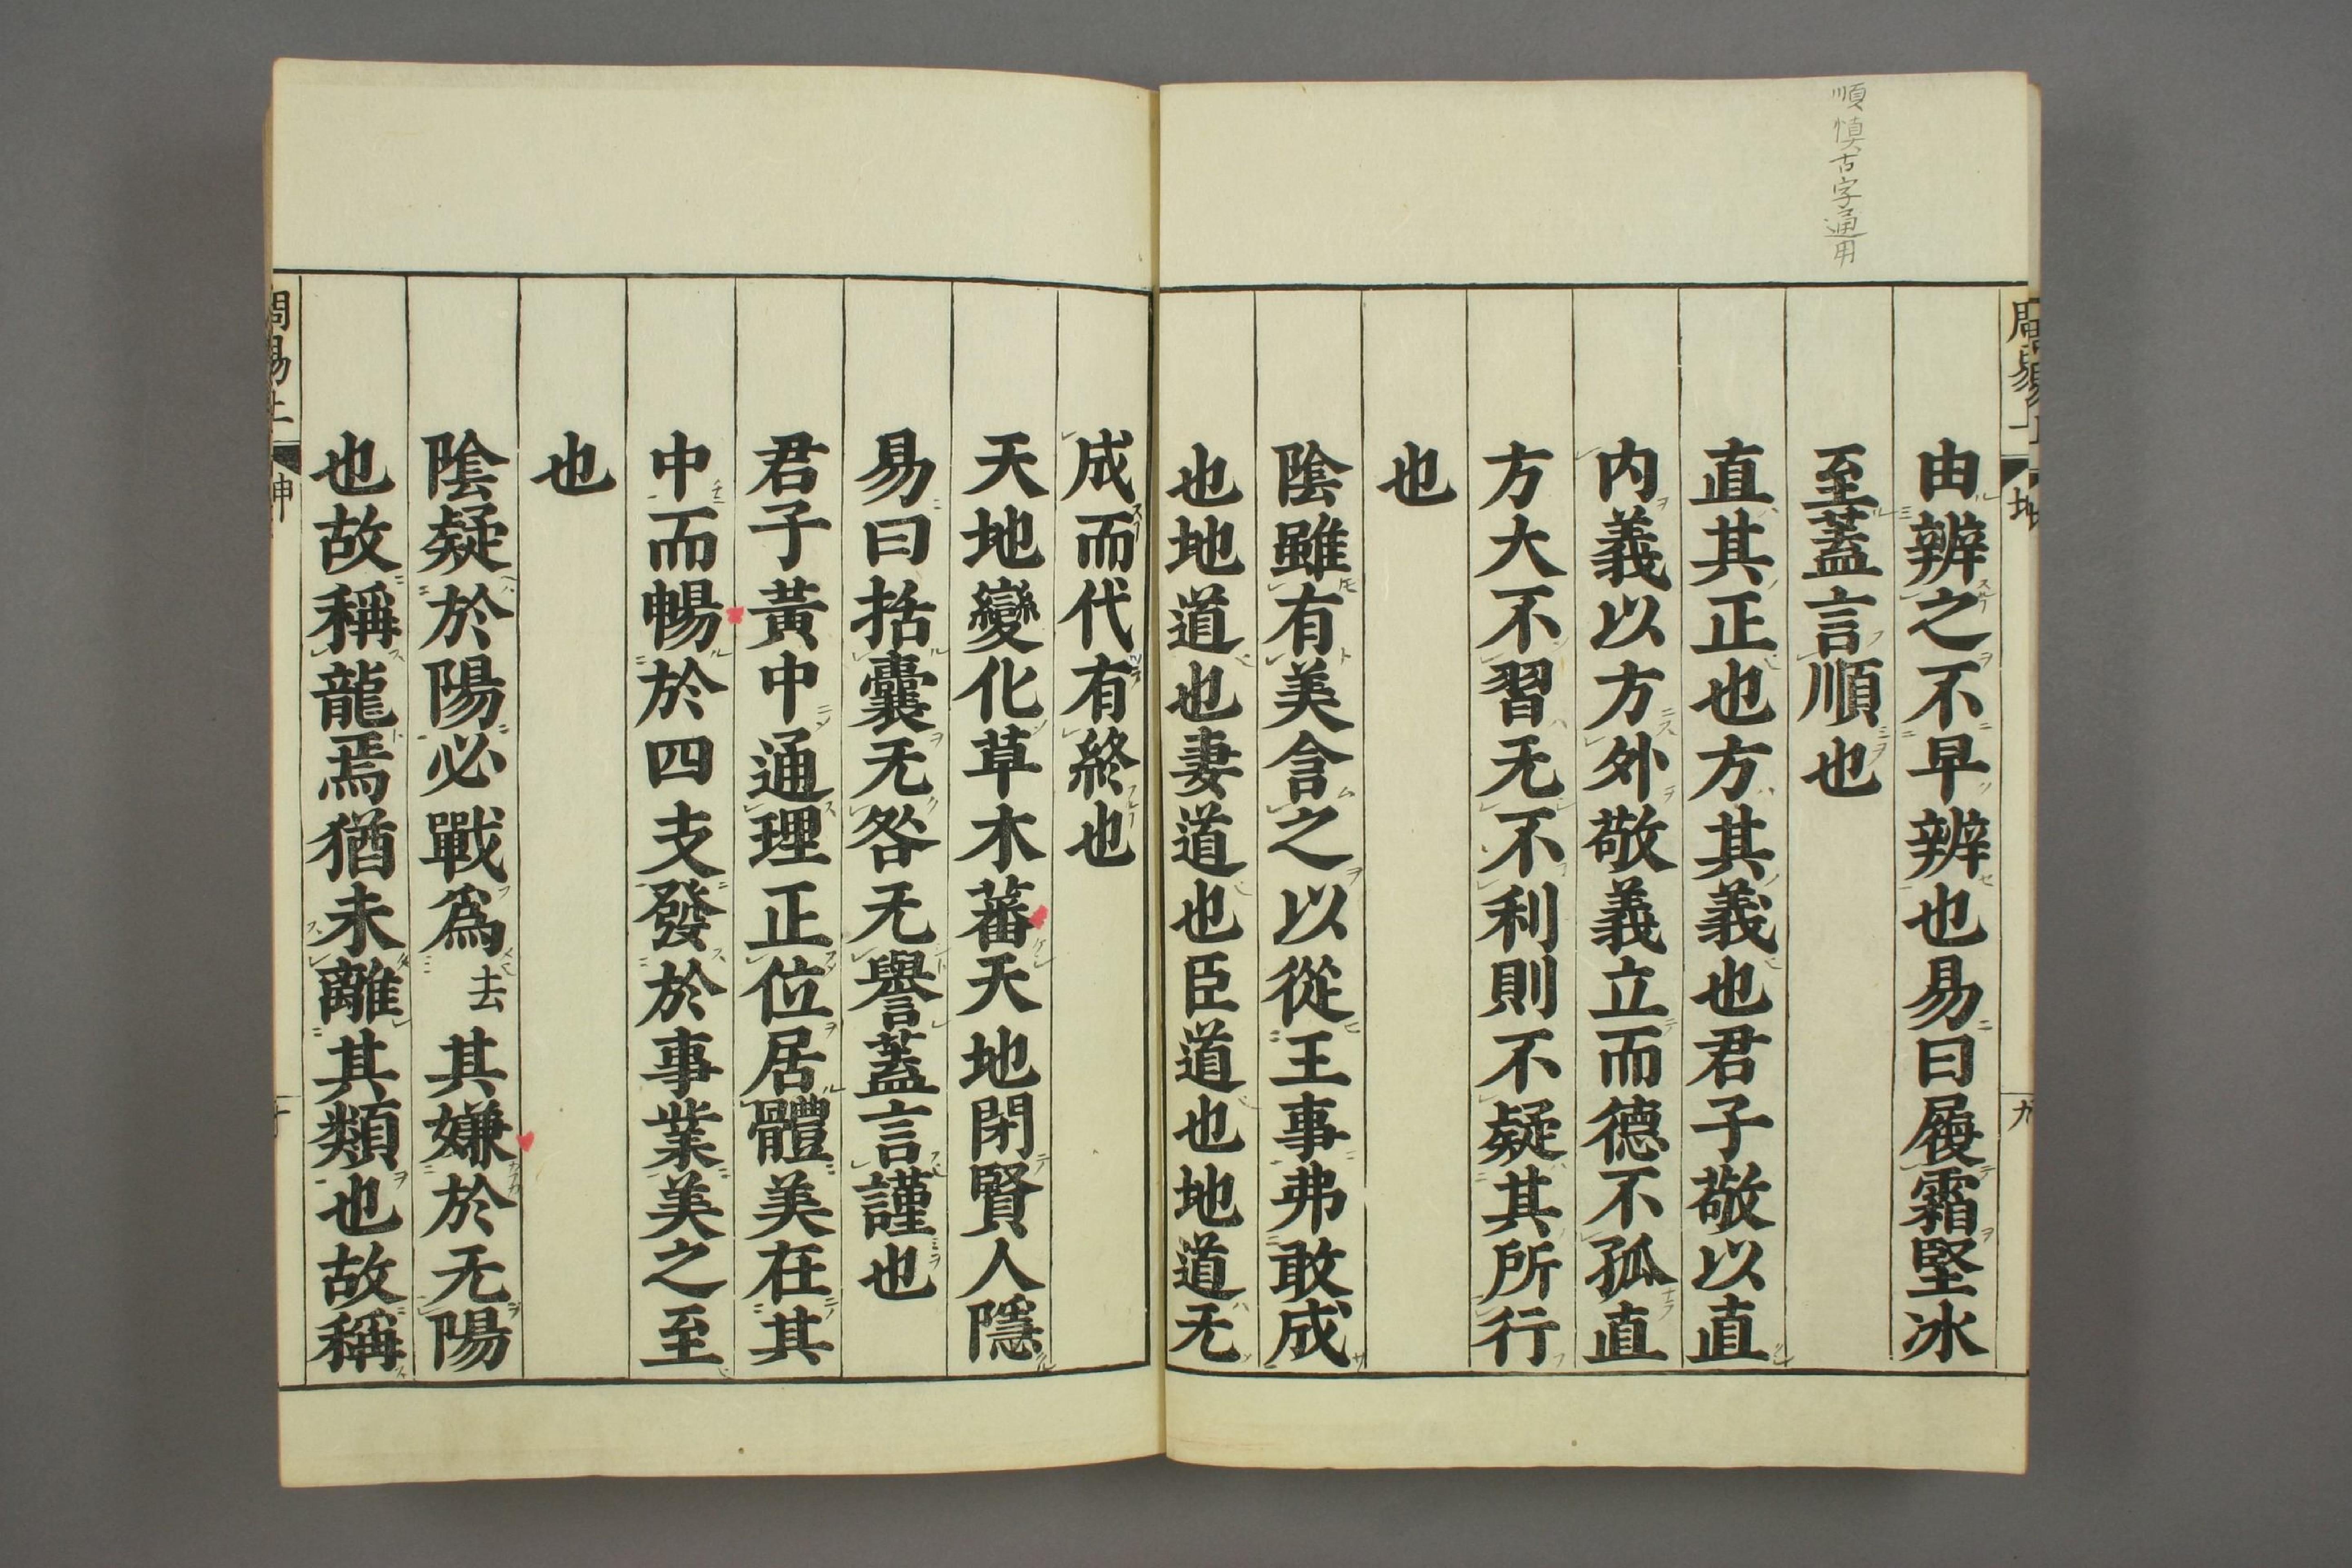 順慎古字通用
周易上
坤
九
由辨之不早辨也易曰履霜堅冰
至蓋言順也
直其正也方其義也君子敬以直
内義以方外敬義立而德不孤直
方大不習无不利則不疑其所行
也
陰雖有美含之以從王事弗敢成
也地道也妻道也臣道也地道无
成而代有終也
天地變化草木蕃天地閉賢人隱
易曰括囊无咎无譽蓋言謹也
君子黃中通理正位居體美在其
中而暢於四支發於事業美之至
也
陰疑於陽必戰爲去其嫌於无陽
也故稱龍焉猶未離其類也故稱
周易上
坤